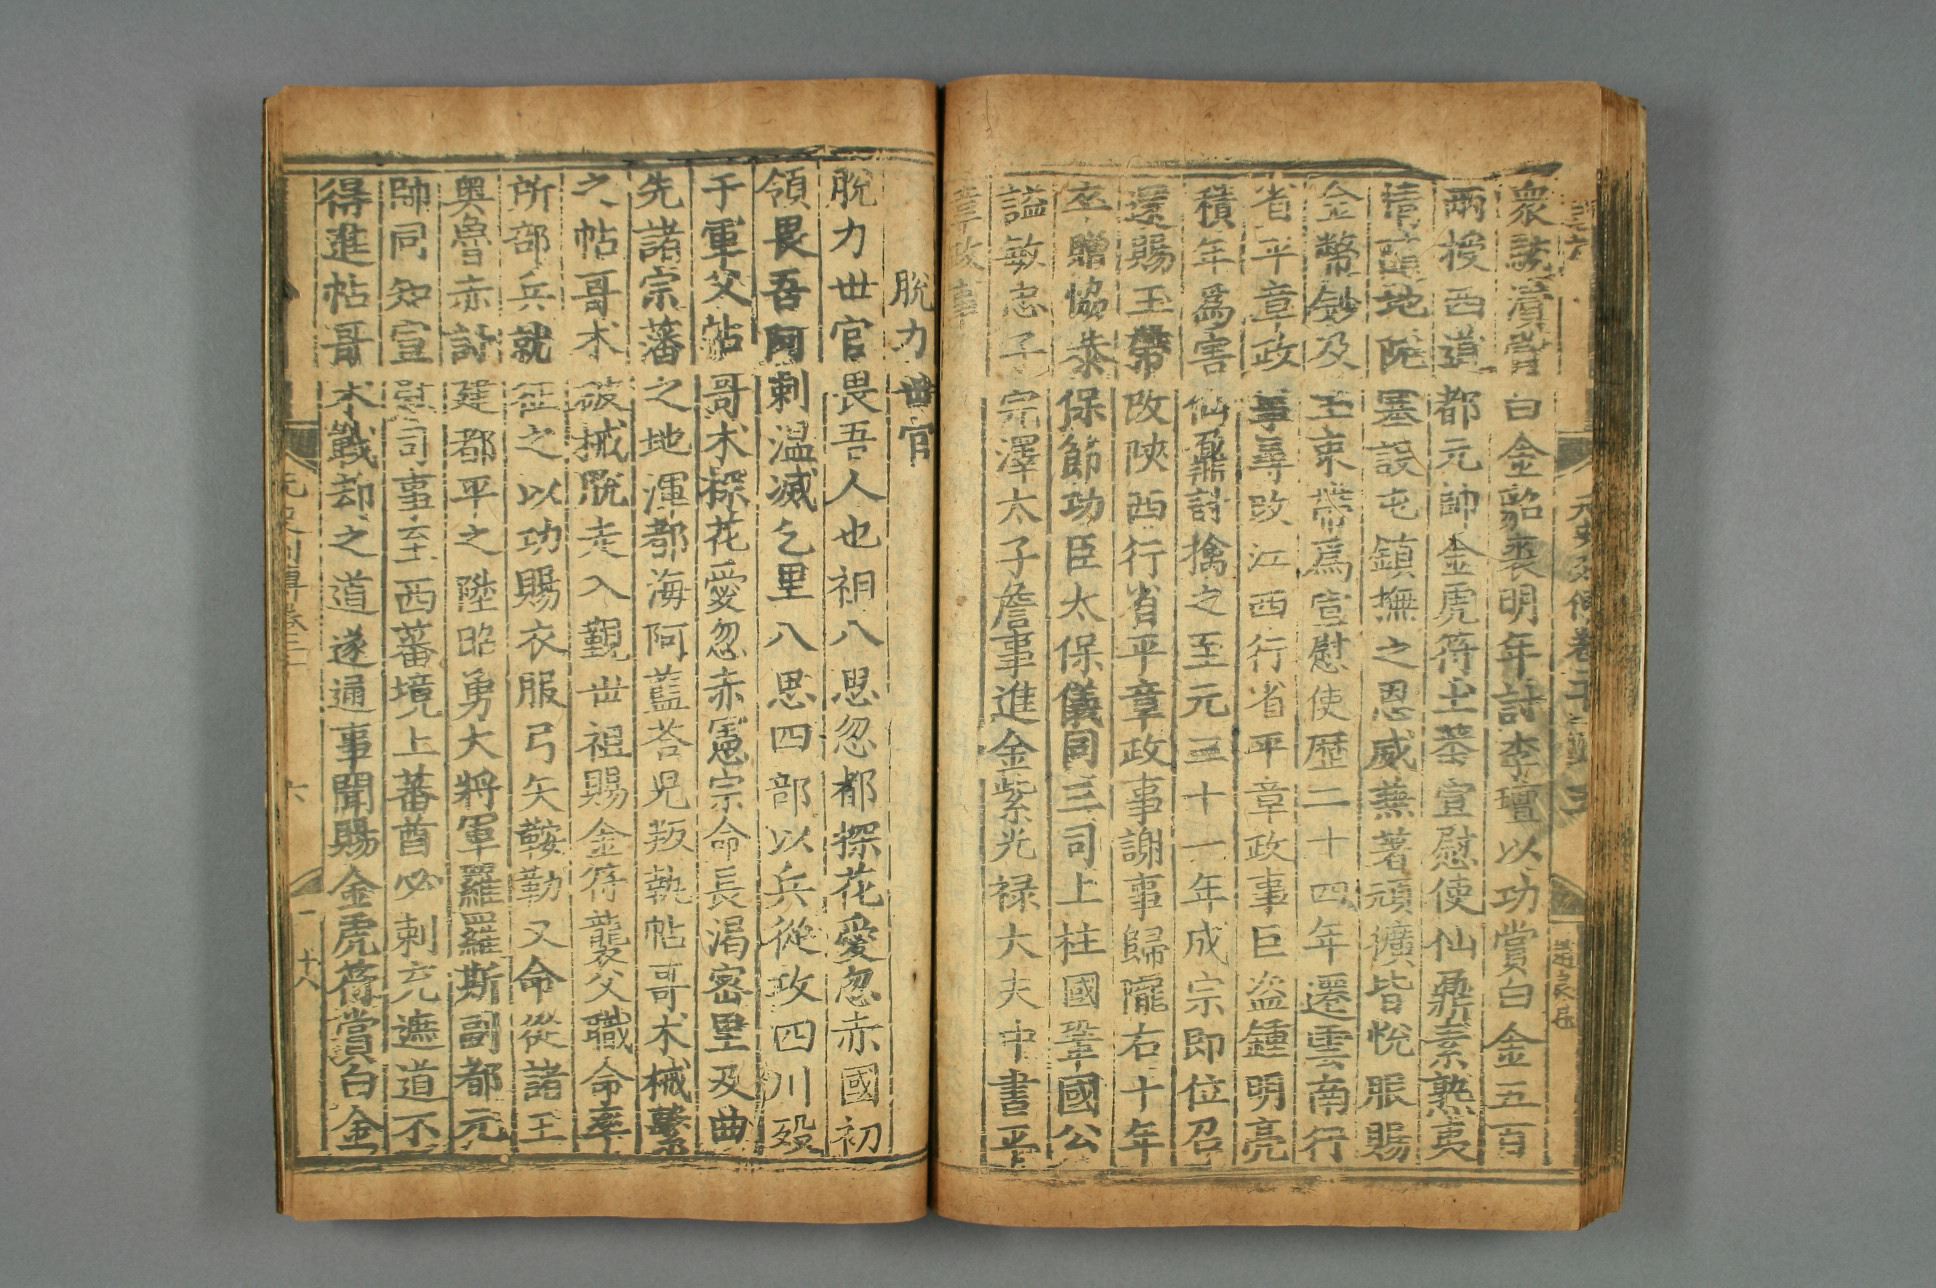 眾詣濟當白金詔褒明年討李璮以功賞白金五百
兩授西道都元帥金虎符土蕃宣慰使仙鼎素熟夷
情隨地阨塞設屯鎮撫之恩威兼著頑獷皆悅服賜
金幣鈔及玉束帶爲宣慰使歷二十四年遷雲南行
省平章政事尋改江西行省平章政事巨盜鍾明亮
積年爲害仙鼐討擒之至元三十一年成宗即位召
還賜玉帶改陝西行省平章政事謝事歸隴右十年
卒贈協恭保節功臣太保儀同三司上柱國鞏國公
謚敏忠子宗澤太子詹事進金紫光祿大夫中書平
章政事
脫力世官
脫力世官畏吾人也祖八思忽都探花愛忽赤國初
領畏吾阿剌溫滅乞里八思四部以兵從攻四川殁
于軍父帖哥术探花愛忽赤憲宗命長渴密里及曲
先諸宗藩之地渾都海阿藍荅兒叛執帖哥术械繫
之帖哥术破械脫走入覲世祖賜金符襲父職命率
所部兵就征之以功賜衣服弓矢鞍勒又命從諸王
奧魯赤討建都平之陞昭勇大將軍羅羅斯副都元
帥同知宣慰司事至西蕃境上蕃酋必剌充遮道不
得進帖哥术戰却之道遂通事聞賜金虎符賞白金
元史列傳卷二十
六
十八